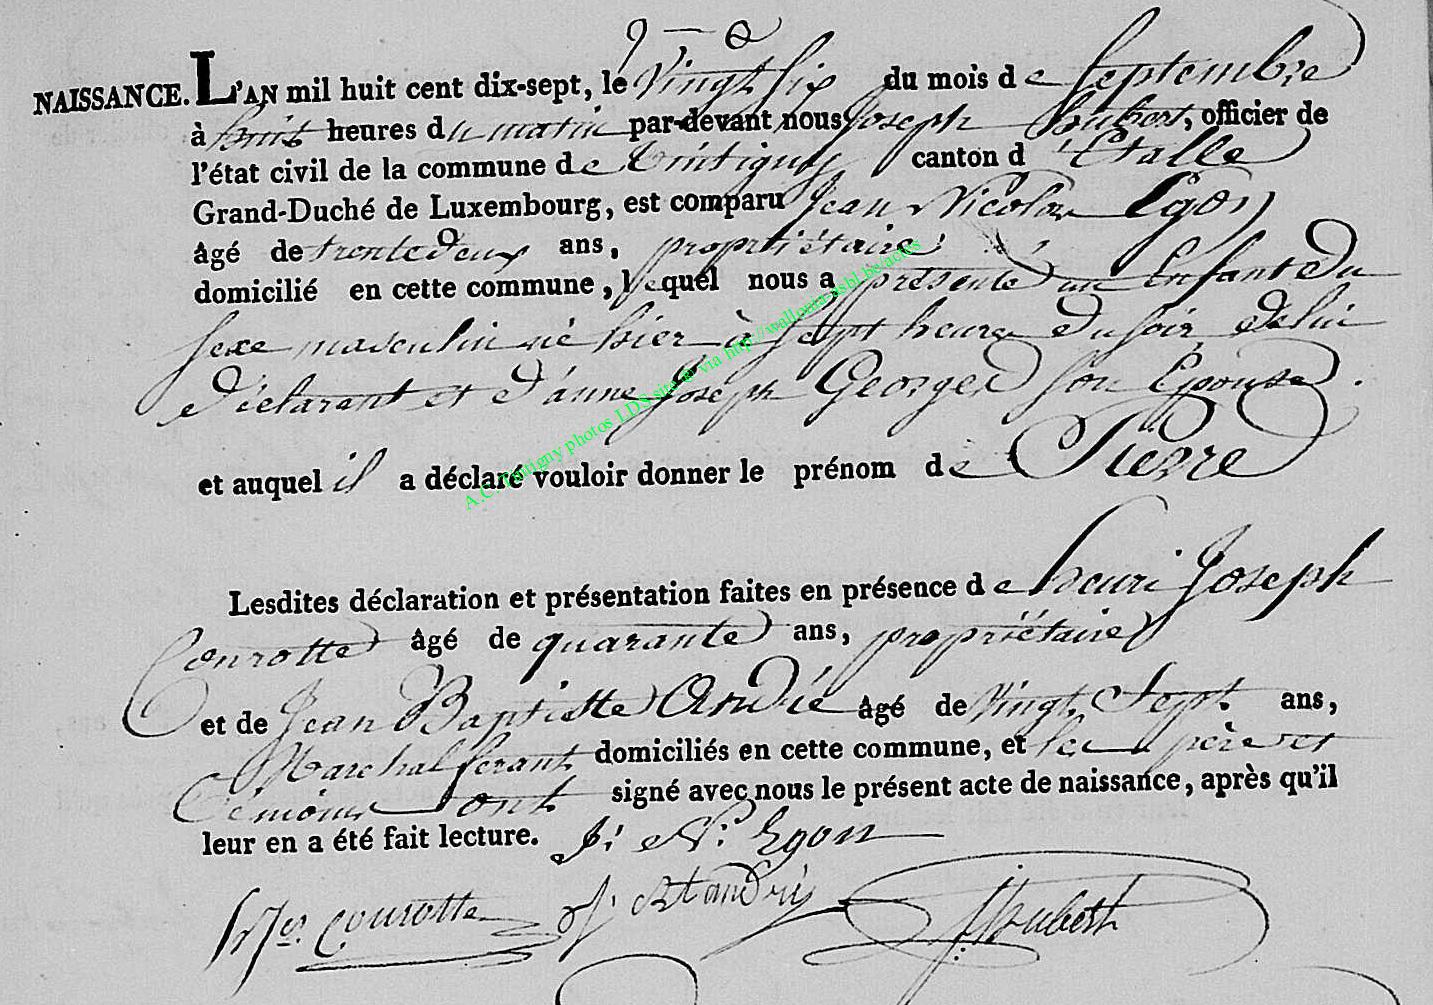 NAISSANCE. L'AN mil huit cent dix-sept, le vingt six du mois de Septembre
à huit heures du matin par-devant nous Joseph hubert, officier de
l'état civil de la commune de tintigny canton d'Etalle
Grand-Duché de Luxembourg, est comparu Jean Nicolas Egon
âgé de trente deux ans, propriétaire
domicilié en cette commune, lequel nous a présenté un Enfant du
sexe masculin né hier à sept heures du soir, de lui
déclarant et d'anne Joseph Georges son Epouse.
et auquel il a déclaré vouloir donner le prénom de Pierre
Lesdites déclaration et présentation faites en présence de henri Joseph
Conrotte âgé de quarante ans, propriétaire
et de Jean Baptiste André âgé de vingt Sept ans,
Marchal ferant domiciliés en cette commune, et les père et
témoins ont signé avec nous le présent acte de naissance, après qu'il
leur en a été fait lecture. J: N: Egon
hJs. Conrotte J: Bt andré JHubert
A.C. Tintigny photos LDS site @ via http://wallonia-asbl.be/actes